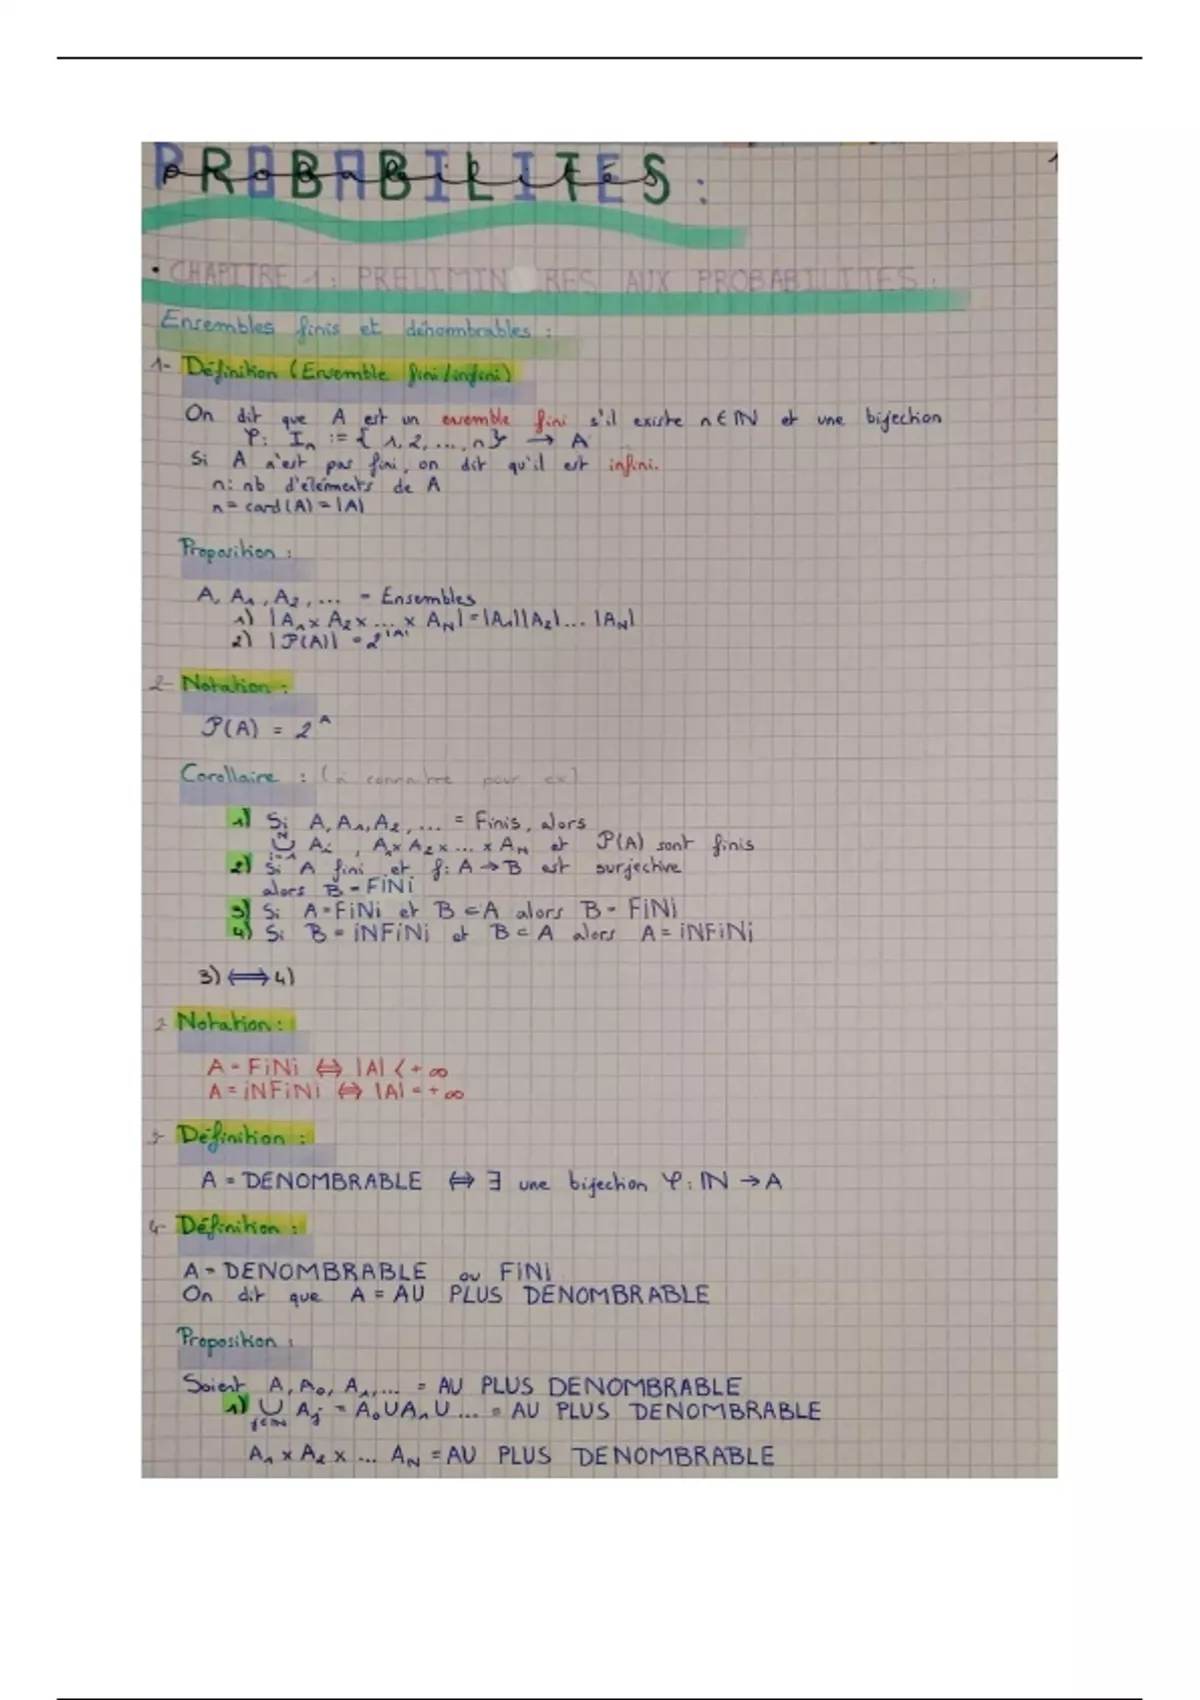 PROBABILITES :
1
• CHAPITRE 1 : PRELIMIN RES AUX PROBABILITES :
Ensembles finis et dénombrables :
1- Définition (Ensemble fini/infini)
On dit que A est un ensemble fini s'il existe n ∈ ℕ et une bijection
φ : Iₙ := { 1, 2, ..., n } → A
Si A n'est pas fini, on dit qu'il est infini.
n : nb d'éléments de A
n = card(A) = |A|
Proposition :
A, A₁, A₂, ... = Ensembles
1) |A₁ × A₂ × ... × A_N| = |A₁||A₂| ... |A_N|
2) |𝒫(A)| = 2^|A|
2- Notation :
𝒫(A) = 2^A
Corollaire : (à connaître pour ex)
1) Si A, A₁, A₂, ... = Finis, alors
⋃_{i=1}^{N} Aᵢ , A₁ × A₂ × ... × A_N et 𝒫(A) sont finis
2) Si A fini et f : A → B est surjective
alors B = FiNi
3) Si A = FiNi et B ⊂ A alors B = FiNi
4) Si B = iNFiNi et B ⊂ A alors A = iNFiNi
3) ⟺ 4)
2- Notation :
A = FiNi ⟺ |A| < + ∞
A = iNFiNi ⟺ |A| = + ∞
3- Définition :
A = DENOMBRABLE ⟺ ∃ une bijection φ : ℕ → A
4- Définition :
A = DENOMBRABLE ou FiNi
On dit que A = AU PLUS DENOMBRABLE
Proposition :
Soient A, A₀, A₁, ... = AU PLUS DENOMBRABLE
1) ⋃_{j∈ℕ} Aⱼ = A₀ ∪ A₁ ∪ ... = AU PLUS DENOMBRABLE
A₁ × A₂ × ... A_N = AU PLUS DENOMBRABLE